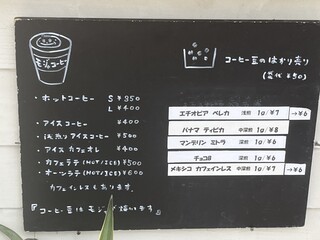 モジョコーヒー
・ホットコーヒー S ¥350
L ¥400
・アイスコーヒー ¥400
・浅煎りアイスコーヒー ¥500
・アイスカフェオレ ¥400
・カフェラテ(HOT/ICE) ¥500
・オーツラテ(HOT/ICE) ¥600
カフェインレスもあります
コーヒー豆は
コーヒー豆のはかり売り
¥50)
エチオピア ベレカ 浅煎 1g/¥7 →¥6
パナマ ティピカ 中深煎 1g/¥8
マンデリン ミトラ 深煎 1g/¥6
チョコⅡ 深煎 1g/¥6
メキシコ カフェインレス 中深煎 1g/¥7 →¥6